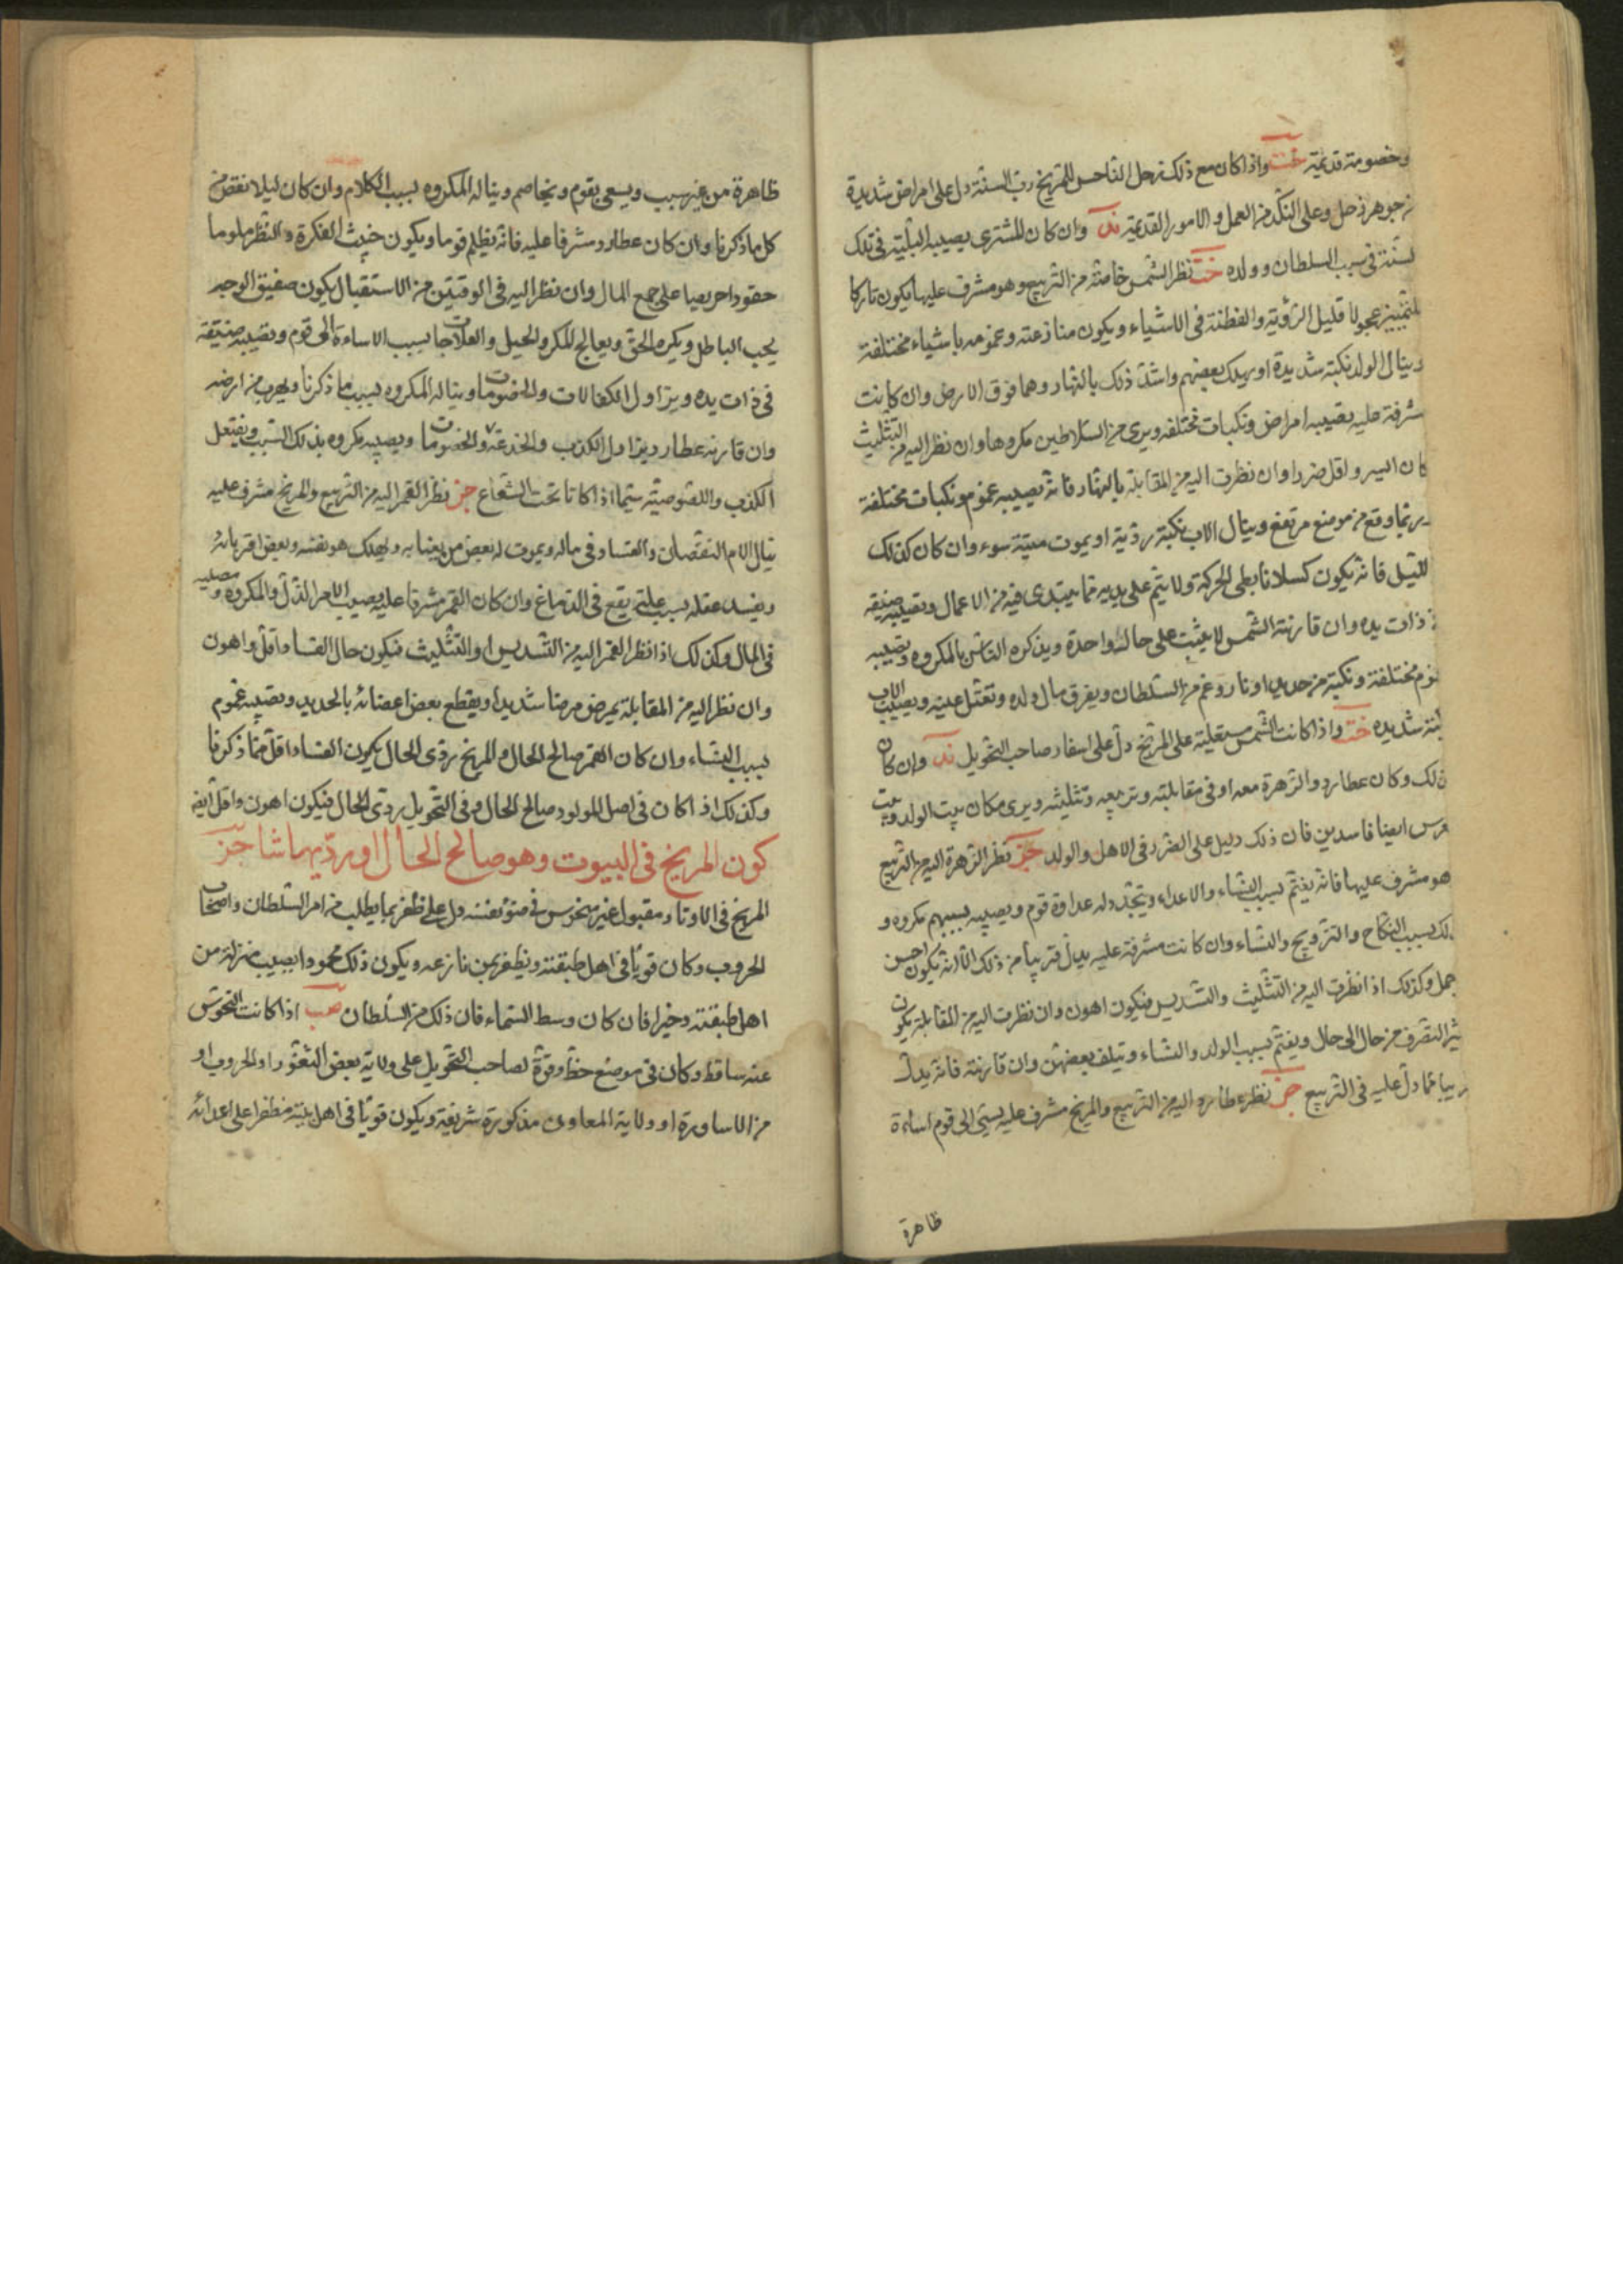 وخصومة قديمة خت واذا كان مع ذلك زحل الناحس للمريخ رب السنة دل على امراض شديدة
من جوهر زحل وعلى النكد من العمل والامور القديمة ند وان كان المشترى يصيبه البلية فى تلك
لسنة فى سبب السلطان وولده خت نظر الشمس خاصة من التربيع وهو مشرف عليها يكون تاركا
للتمييز عجولا قليل الرؤية والفطنة فى الاشياء ويكون منازعته وغمومه باشياء مختلفة
وينال الولد نكبة شديدة او يهلك بعضهم واشد ذلك بالنهار وهما فوق الارض وان كانت
مشرفة عليه يصيبه امراض ونكبات مختلفه ويرى من السلاطين مكروها وان نظر اليه من التثليث
كان ايسر واقل ضررا وان نظرت اليه من المقابلة بالنهار فانه يصيبه غموم ونكبات مختلفة
وربما وقع من موضع مرتفع وينال الاب نكبة رديّة او يموت ميتة سوء وان كان كذلك
الليل فانه يكون كسلانا بطى الحركة ولا يتم على يديه مما يبتدى فيه من الاعمال ويصيبه ضيقه
فى ذات يده وان قارنته الشمس لا يثبت على حالة واحدة ويذكره الناس بالمكروه ويصيبه
غموم مختلفة ونكبة من حديد او نار وغم من السلطان ويفرق مال ولده وتعتل عينه ويصيب الاب
شديده خت واذا كانت الشمس مستعلية على المريخ دل على اسفار صاحب التحويل ند وان كان
ذلك وكان عطارد والزهرة معه او فى مقابلته وتربيعه وتثليثه ويرى مكان بيت الولد وبيت
العرس ايضا فاسدين فان ذلك دليل على الضرر فى الاهل والولد جز نظر الزهرة اليه من التربيع
وهو مشرف عليها فانه يغتم بسبب النساء والاعداء ويتجدد له عداوة قوم ويصيبه بسببهم مكروه و
ذلك بسبب النكاح والتزويج والنساء وان كانت مشرفة عليه يدل قريبا من ذلك الا انه يكون احسن
واجمل وكذلك اذا نظرت اليه من التثليث والتسديس فيكون اهون وان نظرت اليه من المقابلة يكون
كثير التصرف من حال الى حال ويغتم بسبب الولد والنساء ويتلف بعضهن وان قارنته فانه يدل
قريبا مما دل عليه فى التربيع جز نظر عطارد اليه من التربيع والمريخ مشرف عليه يسئ الى قوم اساءة
ظاهرة
ظاهرة من غير سبب ويسعى بقوم ويخاصم ويناله المكروه بسبب الكلام وان كان ليلا نقص من
كل ما ذكرنا وان كان عطارد مشرفا عليه فانه يظلم قوما ويكون خبيث الفكرة والنظر ملوما
حقودا حريصا على جمع المال وان نظر اليه فى الوقتين من الاستقبال يكون صفيق الوجه
يحب الباطل ويكره الحق ويعالج المكر والحيل والعلاجات بسبب الاساءة الى قوم ويصيبه ضيقة
فى ذات يده ويزاول الكفالات والخصومات ويناله المكروه بسبب ما ذكرنا ويهرب من ارضه
وان قارنه عطارد يزاول الكذب والخدعة والخصومات ويصيبه مكروه بذلك السبب ويفتعل
الكذب واللصوصيّة سيما اذا كانا تحت الشعاع جز نظر القمر اليه من التربيع والمريخ مشرف عليه
ينال الام النقصان والفساد فى ماله ويموت له بعض من يعنا به ويهلك هو نفسه وبعض اقربائه
ويفسد عقله بسبب علة يقع فى الدماغ وان كان القمر مشرفا عليه ويصيب الام الذل والمكروه ومصيبه
فى المال وكذلك اذا نظر القمر اليه من التسديس او التثليث فيكون حال الفساد اقل واهون
وان نظر اليه من المقابلة يمرض مرضا شديدا ويقطع بعض اعضائه بالحديد ويصيبه غموم
بسبب النساء وان كان القمر صالح الحال والمريخ ردى الحال يكون الفساد اقل مما ذكرنا
وكذلك اذا كان فى اصل المولود صالح الحال وفى التحويل ردى الحال فيكون اهون واقل ايضا
كون المريخ فى البيوت وهو صالح الحال اورديهما شا جز
المريخ فى الاوتاد مقبول غير منحوس فى ضوء نفسه دل على ظفر بما يطلب من امر السلطان واصحاب
الحروب وكان قويّا فى اهل طبقته ويظفر بمن نازعه ويكون ذلك محمودا يصيب منزلة من
اهل طبقته وخيرا فان كان وسط السماء فان ذلك من السلطان صب اذا كانت النحوس
عنه ساقط وكان فى موضع حظ وقوة لصاحب التحويل على ولاية بعض الثغور او الحروب او
من الاساورة او ولاية المعاون مذكورة شريفة ويكون قويّا فى اهل بيته مظفرا على اعدائه